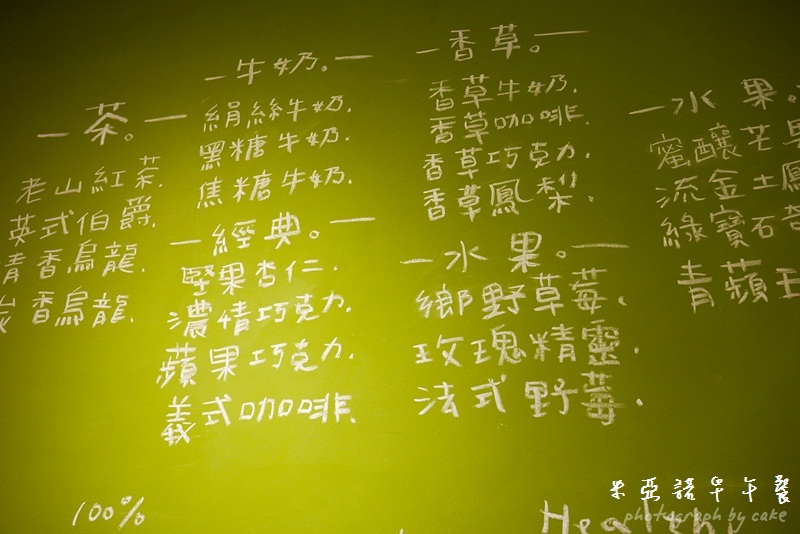 茶。
老山紅茶.
英式伯爵.
青香烏龍.
炭香烏龍.
牛奶。
絹絲牛奶.
黑糖牛奶.
焦糖牛奶.
經典。
堅果杏仁.
濃情巧克力.
蘋果巧克力.
義式咖啡.
香草。
香草牛奶.
香草咖啡.
香草巧克力.
香草鳳梨.
水果。
鄉野草莓.
玫瑰精靈.
法式野莓.
水果。
蜜釀芒果
流金土鳳
綠寶石奇
青蘋
100%
Healthy
米亞諾早午餐
photograph by cake